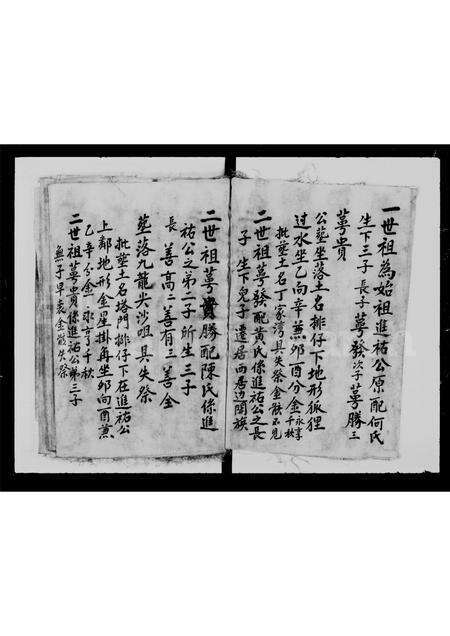 一世祖為始祖進祐公原配何氏
生下三子長子萼發次子萼勝三
萼貴
公塋坐落土名排仔下地形狐狸
过水坐乙向辛兼卯酉分金永享千秋
批塋土名丁家湾具失祭金骸不見
二世祖萼發配黄氏係進祐公之長
子生下兒子遷居西邊闔族
二世祖萼貴勝配陳氏係進
祐公之弟二子所生三子
長善高二善有三善全
塋落九龍尖沙咀具失祭
批塋土名塔門排仔下在進祐公
上鄰地形金星掛角坐卯向酉兼
乙辛分金永亨千秋
二世祖萼貴係進祐公弟三子
無子早喪金骸失祭